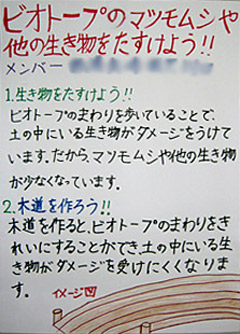 ビオトープのマツモムシや
他の生き物をたすけよう!!
メンバー
1.生き物をたすけよう!!
ビオトープのまわりを歩いていることで、
土の中にいる生き物がダメージをうけて
います。だから、マツモムシや他の生き物
が少なくなっています。
2.木道を作ろう!!
木道を作ると、ビオトープのまわりをき
れいにすることができ、土の中にいる生
き物がダメージを受けにくくなりま
す。
イメージ図